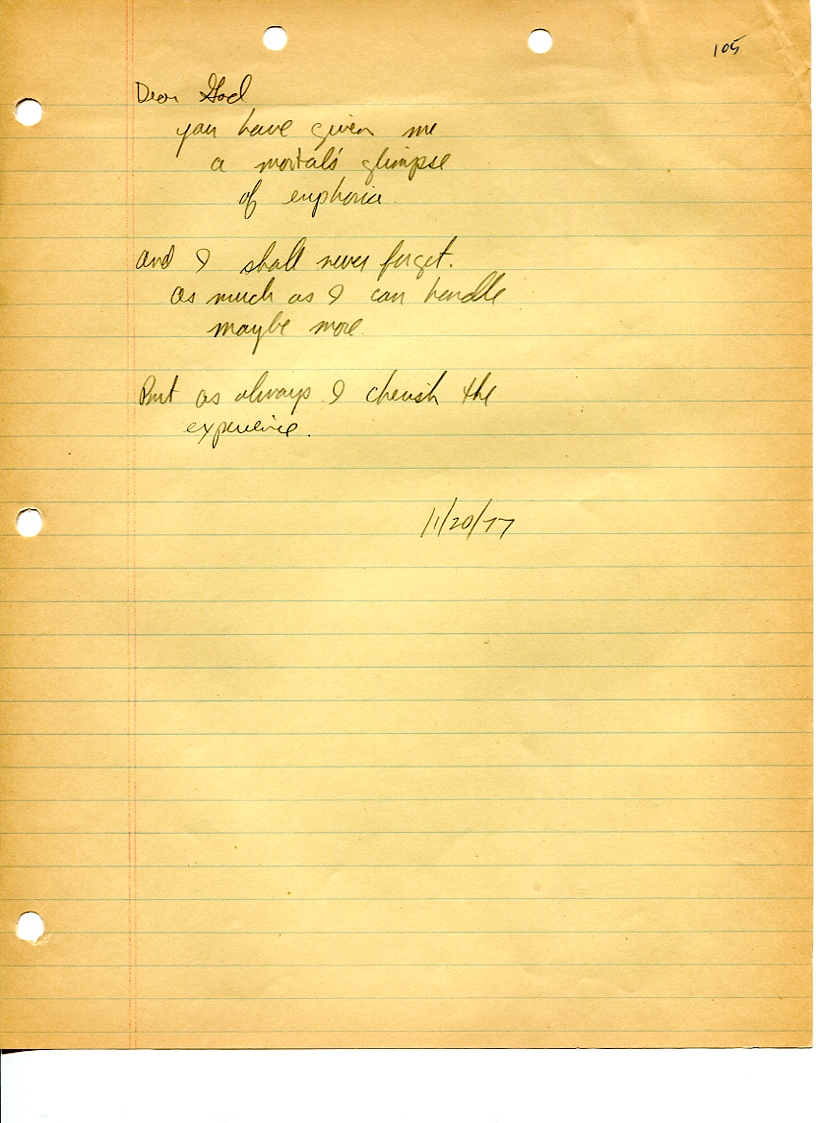 105
Dear God
you have given me
a mortal's glimpse
of euphoria
and I shall never forget.
as much as I can handle
maybe more
But as always I cherish the
experience.
11/20/77